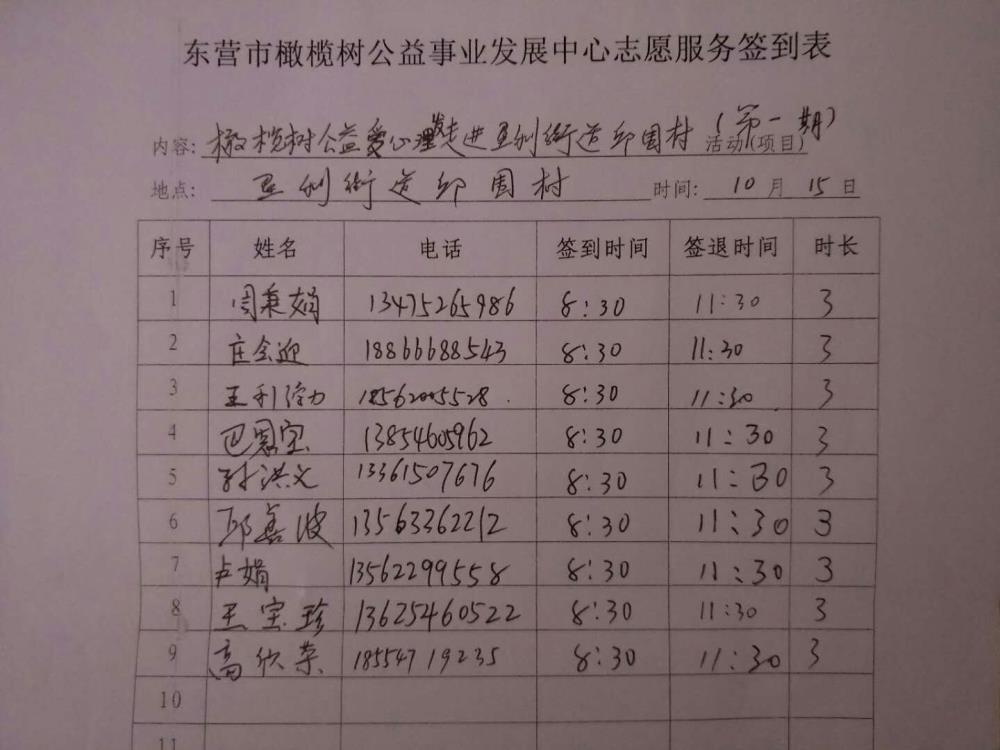 东营市橄榄树公益事业发展中心志愿服务签到表
内容: 橄榄树公益爱心理发走进垦利街道邱围村(第一期) 活动(项目)
地点: 垦利街道邱围村 时间: 10月15日
序号 姓名 电话 签到时间 签退时间 时长
1 周秉娟 13475265986 8:30 11:30 3
2 庄会迎 18866688543 8:30 11:30 3
3 王利 18562005528 8:30 11:30 3
4 巴恩宝 13854605962 8:30 11:30 3
5 孙洪义 13361507676 8:30 11:30 3
6 邱嘉波 13563362212 8:30 11:30 3
7 卢娟 13562299558 8:30 11:30 3
8 王宝珍 13625460522 8:30 11:30 3
9 高欣荣 18554719235 8:30 11:30 3
10
11